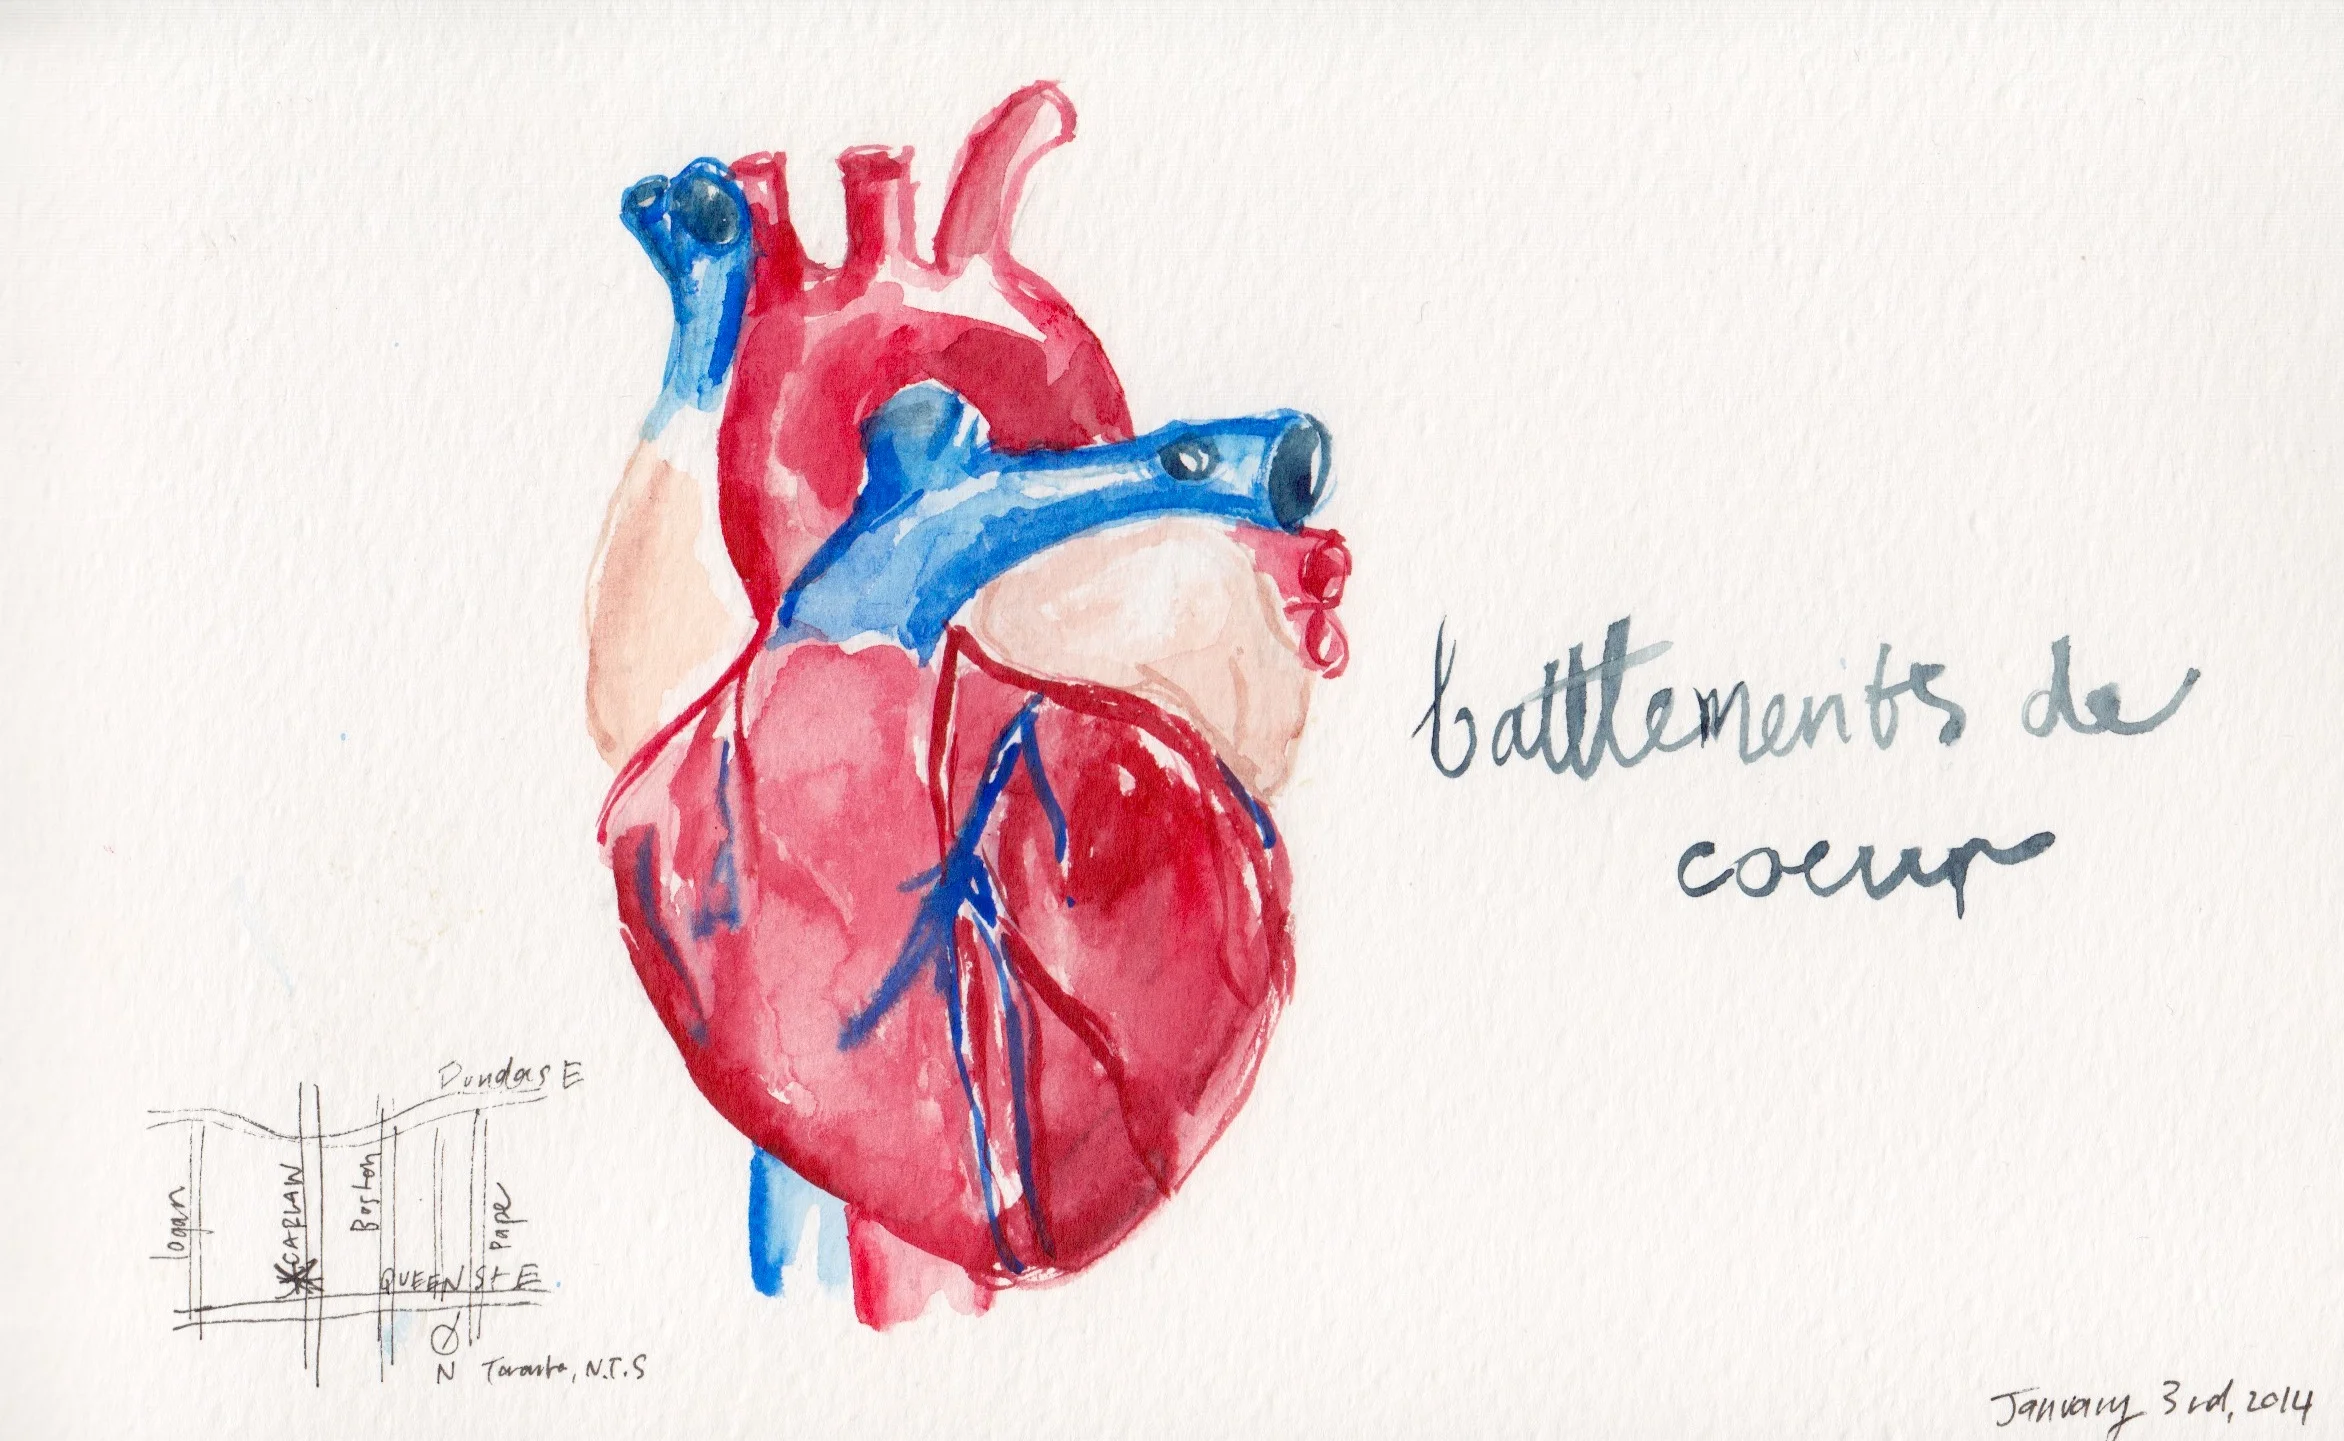 battements de
coeur
Dundas E
Logan
CARLAW
Boston
Pape
QUEEN St E
N Toronto, N.T.S
January 3rd, 2014